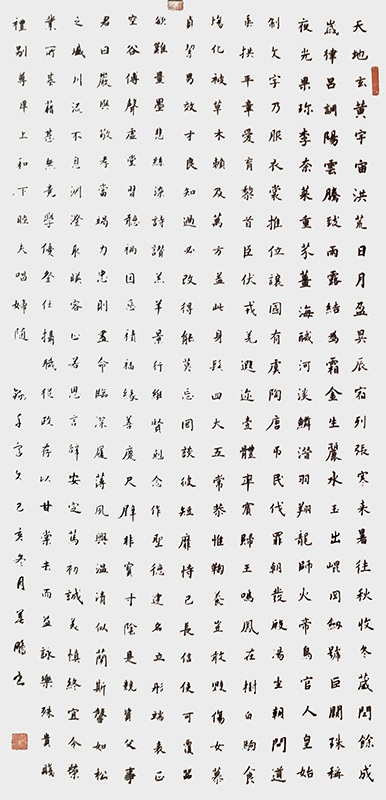 天地玄黃宇宙洪荒日月盈昃辰宿列張寒來暑往秋收冬藏閏餘成
歲律呂調陽雲騰致雨露結為霜金生麗水玉出崐岡劍號巨闕珠稱
夜光果珍李柰菜重芥薑海鹹河淡鱗潛羽翔龍師火帝鳥官人皇始
制文字乃服衣裳推位讓國有虞陶唐吊民伐罪周發殷湯坐朝問道
垂拱平章愛育黎首臣伏戎羌遐邇壹體率賓歸王鳴鳳在樹白駒食
場化被草木賴及萬方蓋此身髮四大五常恭惟鞠養豈敢毀傷女慕
貞絜男效才良知過必改得能莫忘罔談彼短靡恃己長信使可覆器
欲難量墨悲絲染詩讚羔羊景行維賢剋念作聖德建名立形端表正
空谷傳聲虛堂習聽禍因惡積福緣善慶尺璧非寶寸陰是競資父事
君曰嚴與敬孝當竭力忠則盡命臨深履薄夙興溫凊似蘭斯馨如松
之盛川流不息淵澄取映容止若思言辭安定篤初誠美慎終宜令榮
業所基籍甚無竟學優登仕攝職從政存以甘棠去而益詠樂殊貴賤
禮別尊卑上和下睦夫唱婦隨 千字文己亥冬月